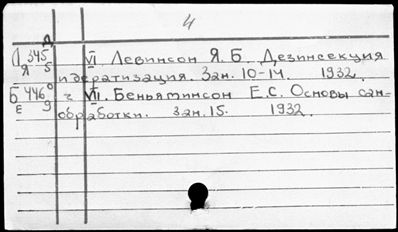 4
Д
Л 345 VI. Левинсон Я. Б. Дезинсекция
Я 5 и дератизация. Зан. 10-14. 1932.
Б 446° г VII. Беньяминсон Е.С. Основы сан-
Е 9 обработки. Зан. 15. 1932.